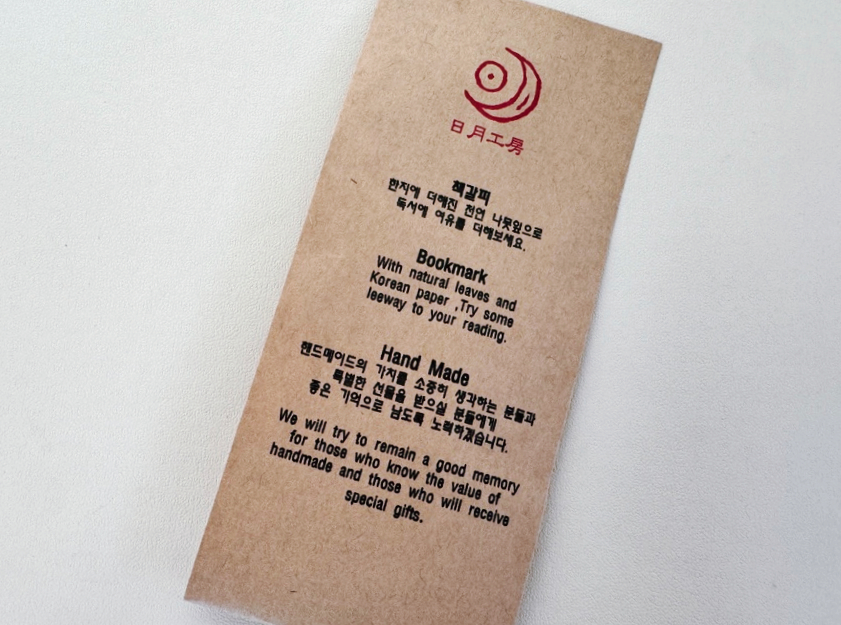 日月工房
책갈피
한지에 더해진 천연 나뭇잎으로
독서에 여유를 더해보세요.
Bookmark
With natural leaves and
Korean paper ,Try some
leeway to your reading.
Hand Made
핸드메이드의 가치를 소중히 생각하는 분들과
특별한 선물을 받으실 분들에게
좋은 기억으로 남도록 노력하겠습니다.
We will try to remain a good memory
for those who know the value of
handmade and those who will receive
special gifts.